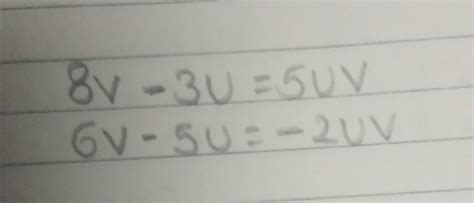 8V - 3U = 5UV
6V - 5U = -2UV